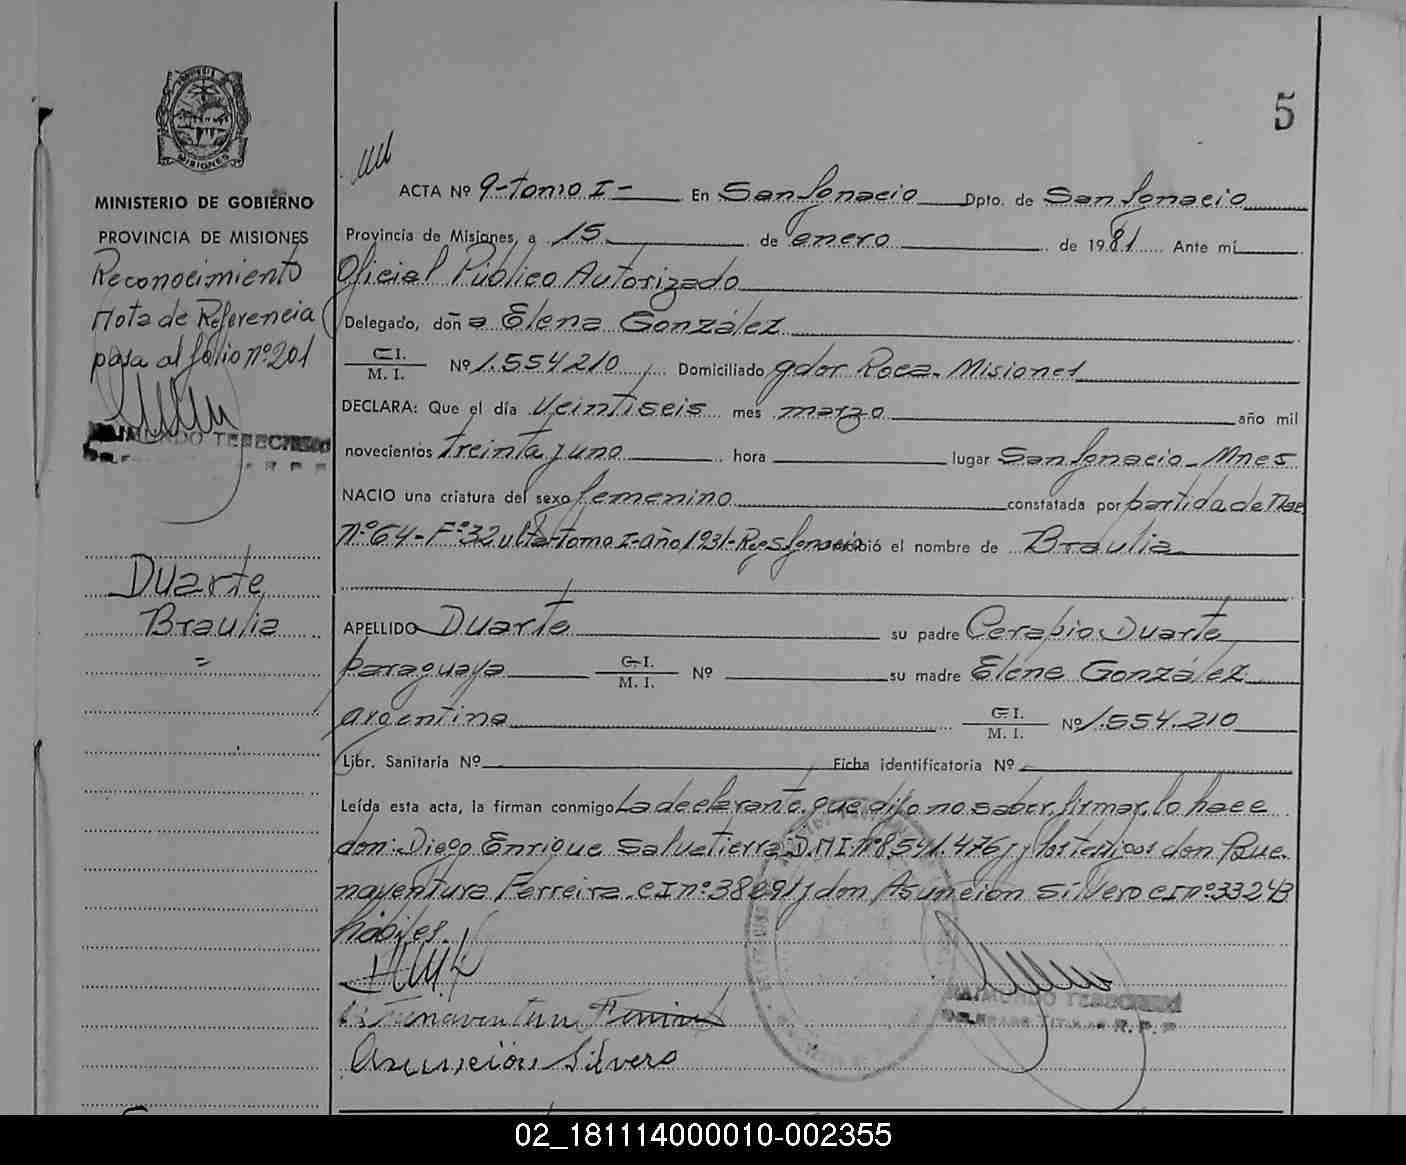 5
PROVINCIA DE
MISIONES
MINISTERIO DE GOBIERNO
PROVINCIA DE MISIONES
Reconocimiento
Nota de Referencia
pasa al folio nº 201
RAIMUNDO TERECZENKO
Duarte
Braulia
=
ACTA Nº 9-tomo I- En San Ignacio Dpto. de San Ignacio
Provincia de Misiones, a 15 de enero de 1981 Ante mí
Oficial Público Autorizado
Delegado, doña Elena González
C.I.
M. I. Nº 1.554.210, Domiciliado gdor Roca. Misiones
DECLARA: Que el día veintiseis mes marzo año mil
novecientos treinta y uno hora lugar San Ignacio - Mnes
NACIO una criatura del sexo femenino constatada por partida de Nac
Nº 64 - Fº 32 vlta - tomo I - año 1931 - Reg S Ignacio recibió el nombre de Braulia
APELLIDO Duarte su padre Cerapio Duarte
paraguaya C.I.
M. I. Nº su madre Elena González
argentina C.I.
M. I. Nº 1.554.210
Libr. Sanitaria Nº Ficha identificatoria Nº
Leída esta acta, la firman conmigo La declarante que dijo no saber firmar, lo hace
don: Diego Enrique Salvatierra D.M.I nº 8.541.476 y los testigos don Bue-
naventura Ferreira. CI nº: 38091 y don Asunción Silvero CI nº: 33243
hábiles.
Buenaventura Ferreira
Asunción Silvero
RAIMUNDO TERECZENKO
DELEGADO TITULAR R. P. P
02_181114000010-002355